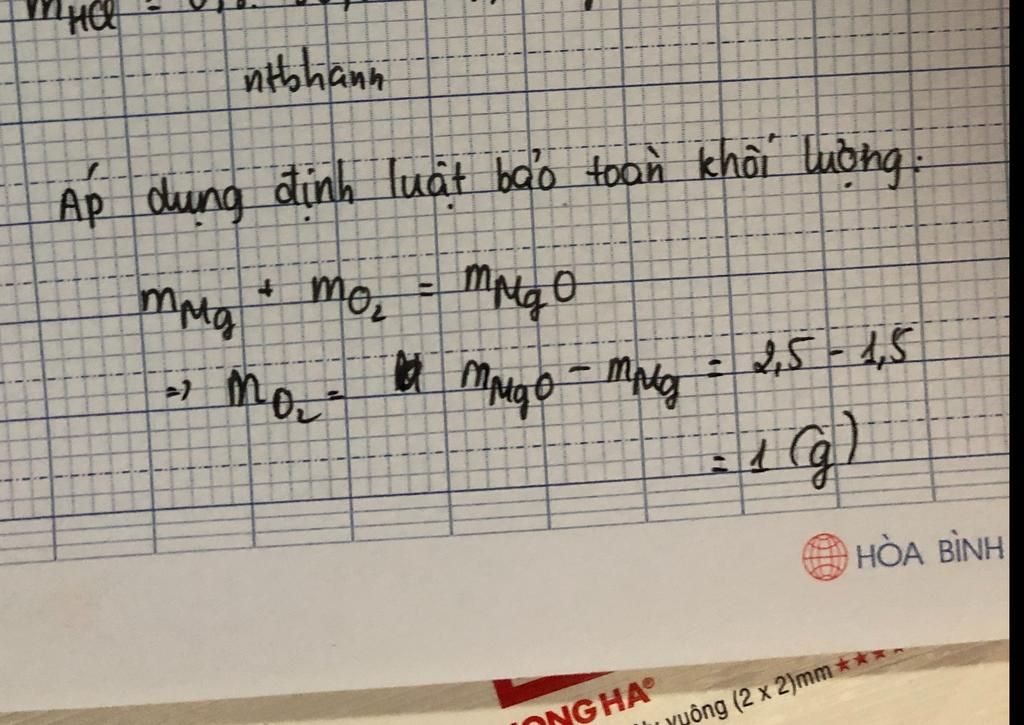 mHCl =
nthhanh
Áp dụng định luật bảo toàn khối lượng:
mMg + mO2 = mMgO
=> mO2 = mMgO - mMg = 2,5 - 1,5
= 1 (g)
HÒA BÌNH
ONG HA®
vuông (2 x 2)mm ★★★★